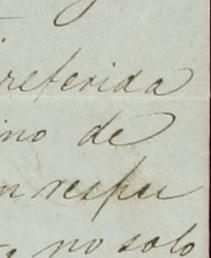 referida
ino de
n respu
no solo